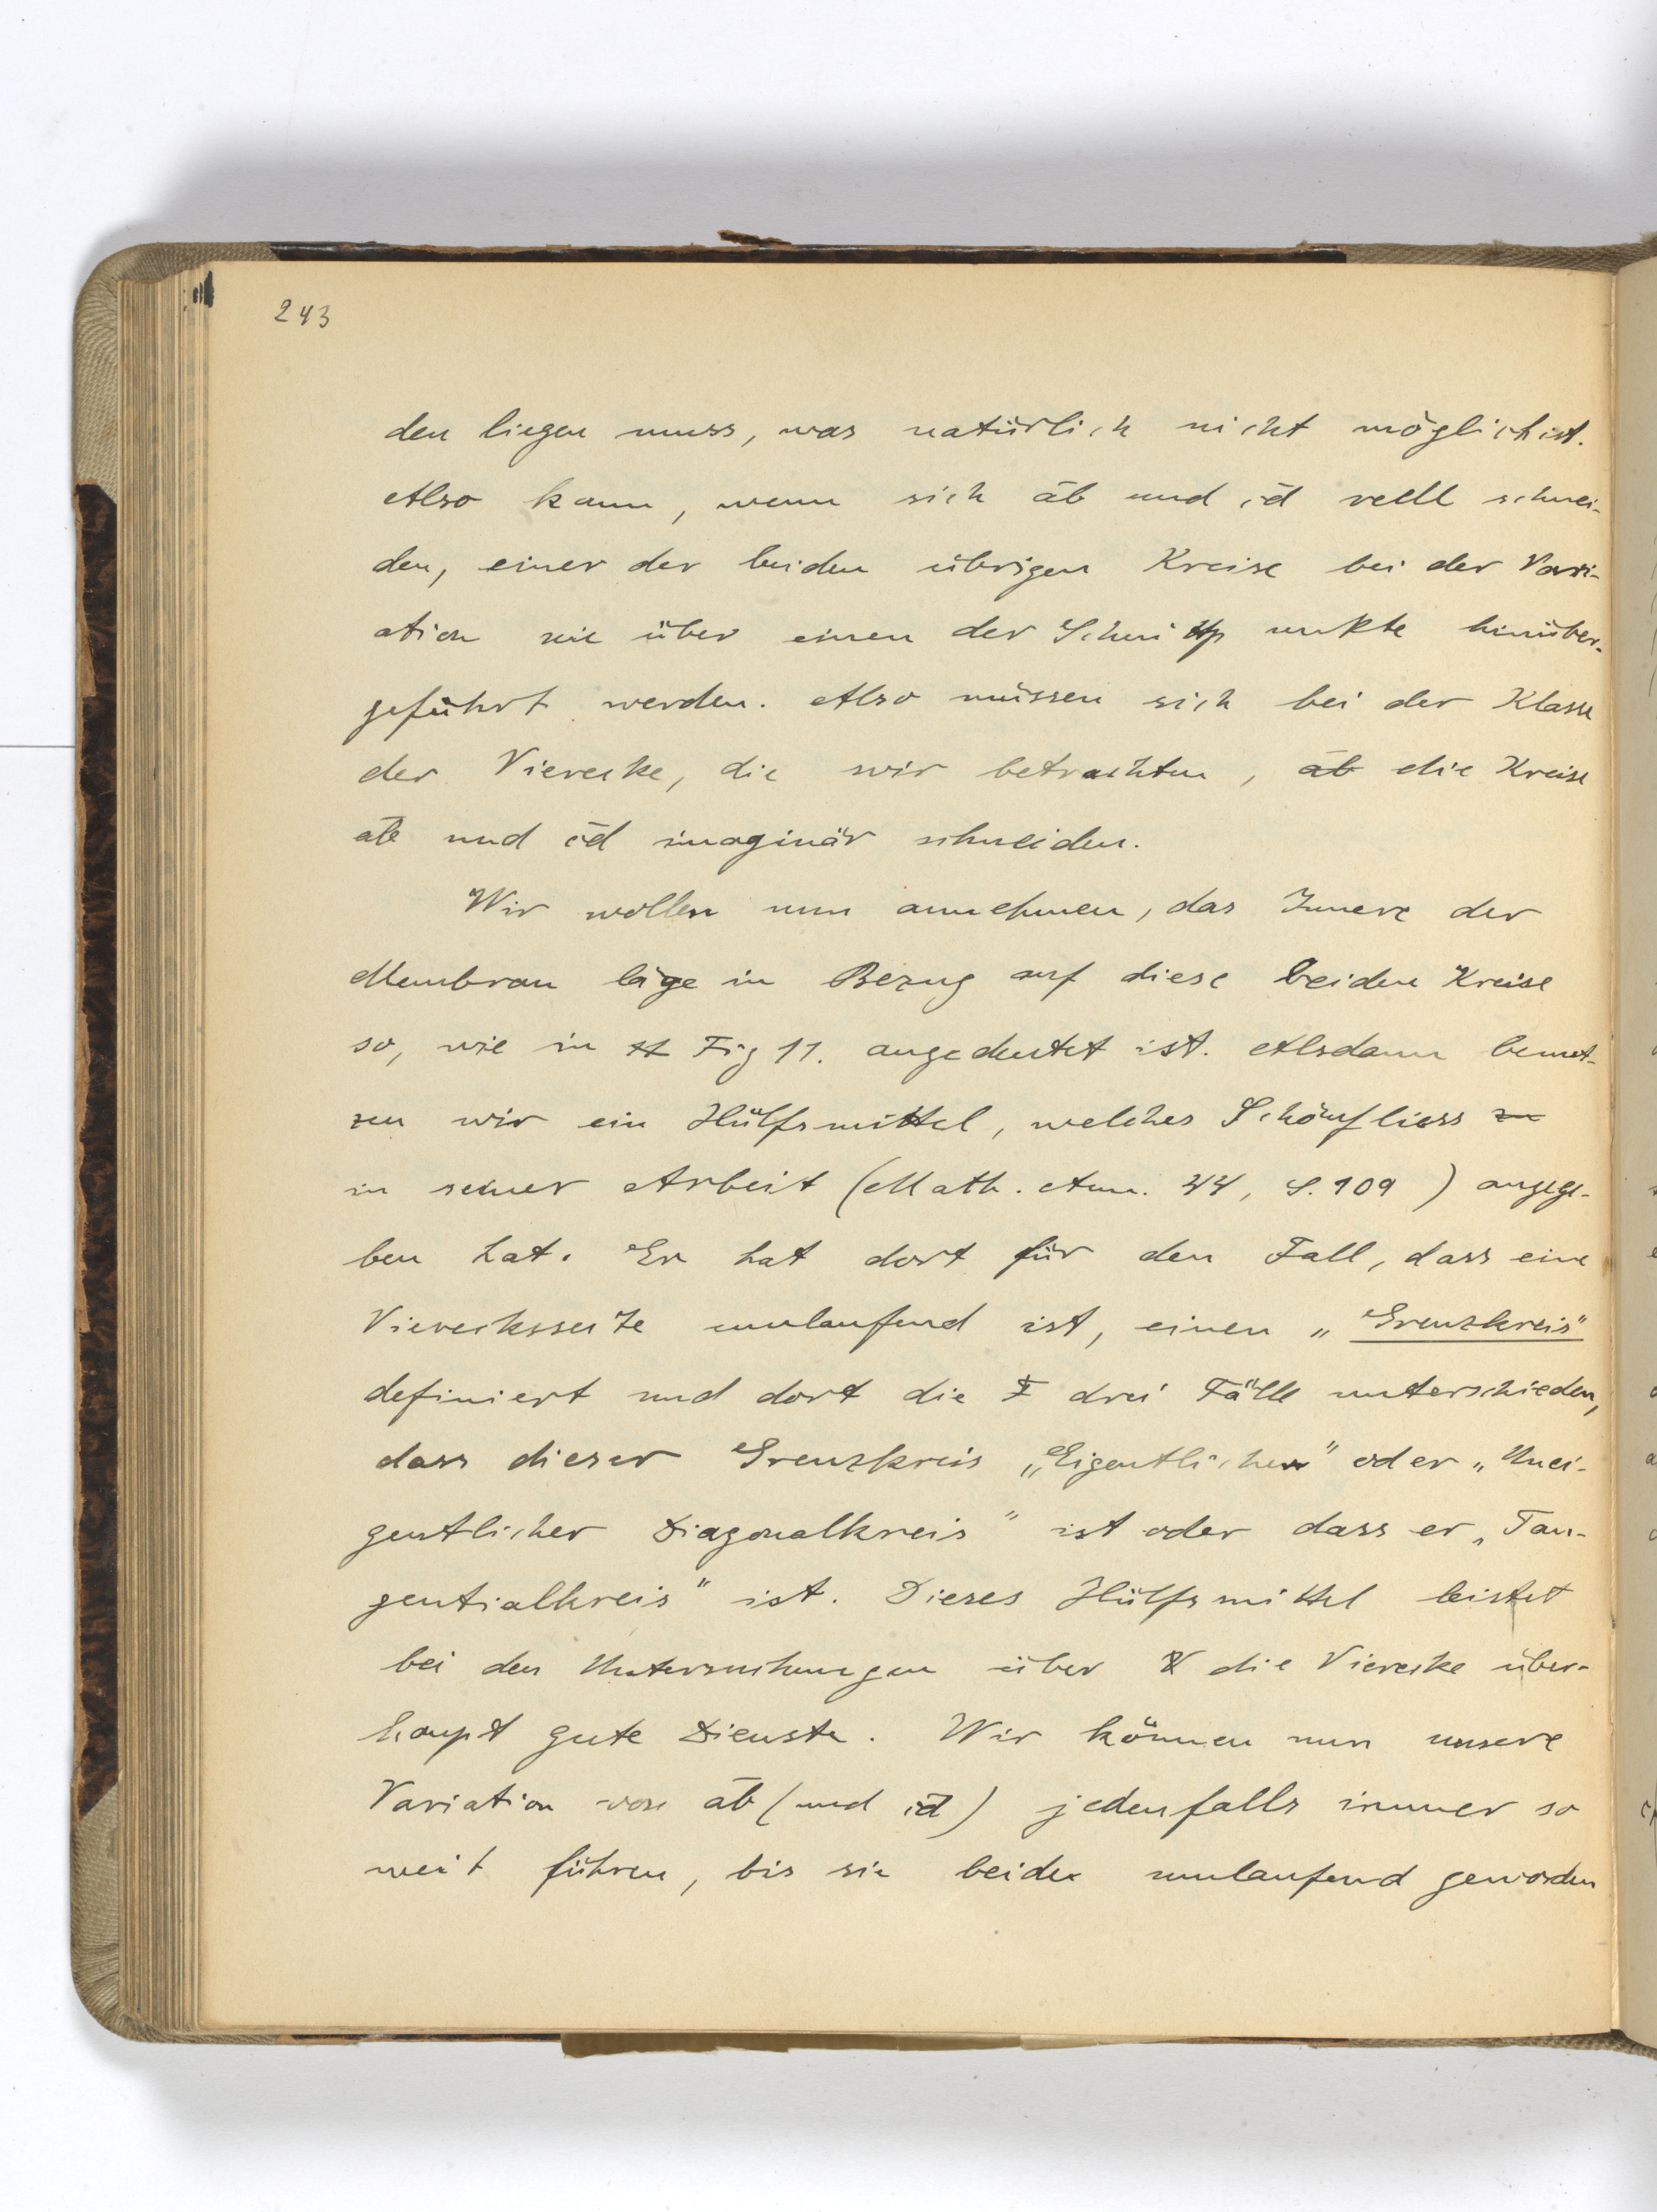 243
den liegen muss, was natürlich nicht möglich ist.
Also kann, wenn sich a͞b und c͞d reell schnei-
den, einer der beiden übrigen Kreise bei der Vari-
ation nie über einen der Schnittpunkte hinüber-
geführt werden. Also müssen sich bei der Klasse
der Vierecke, die wir betrachten, a͞b die Kreise
a͞b und c͞d imaginär schneiden.
Wir wollen nun annehmen, das Innere der
Membran läge in Bezug auf diese beiden Kreise
so, wie in Fig 11. angedeutet ist. Alsdann benut-
zen wir ein Hülfsmittel, welches Schönfliess zu
in seiner Arbeit (Math. Ann. 44, S. 109 ) angege-
ben hat. Er hat dort für den Fall, dass eine
Vierecksseite umlaufend ist, einen „Grenzkreis"
definiert und dort die F drei Fälle unterschieden,
dass dieser Grenzkreis „Eigentlicher" oder „Unei-
gentlicher Diagonalkreis" ist oder dass er „Tan-
gentialkreis" ist. Dieses Hülfsmittel leistet
bei den Untersuchungen über V die Vierecke über-
haupt gute Dienste. Wir können nun unsere
Variation von a͞b (und c͞d) jedenfalls immer so
weit führen, bis sie beide umlaufend geworden